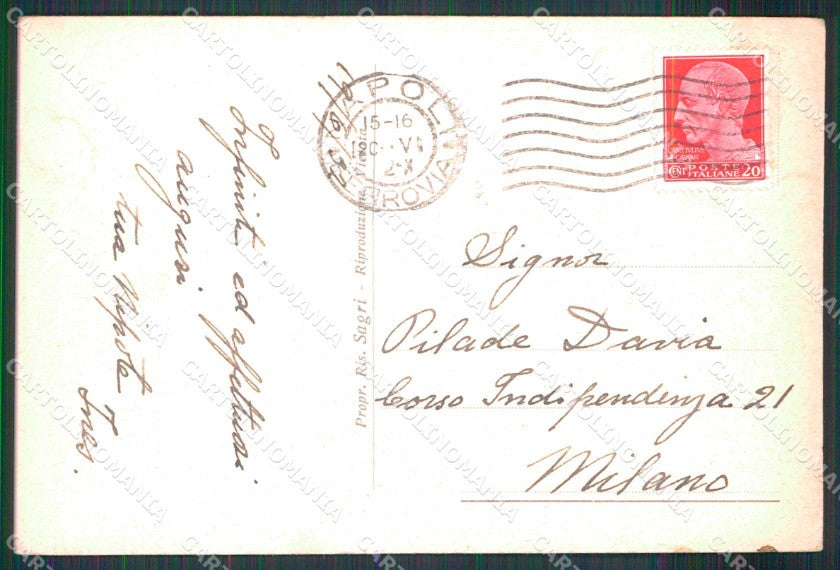 Infiniti ed affettuosi
auguri
tua Nipote
Ines.
Propr. Ris. Sagri - Riproduzione Vietata
NAPOLI
15-16
FERROVIA
POSTE
ITALIANE
CENT 20
Signor
Pilade Davia
Corso Indipendenza 21
Milano
CARTOLINOMANIA